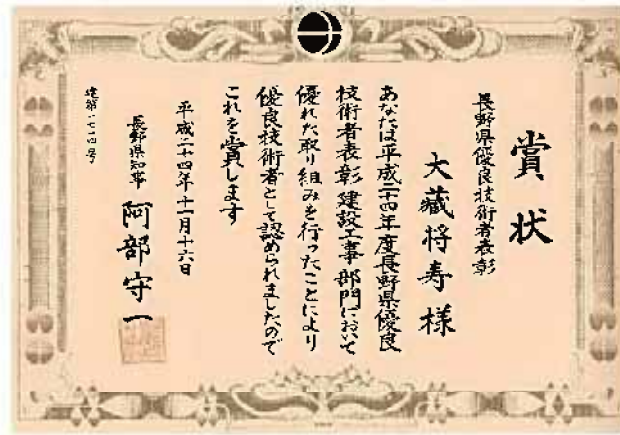 賞状
長野県優良技術者表彰
大蔵将寿様
あなたは平成二十四年度長野県優良
技術者表彰建設工事部門において
優れた取り組みを行ったことにより
優良技術者として認められましたので
これを賞します
平成二十四年十一月十六日
長野県知事 阿部守一